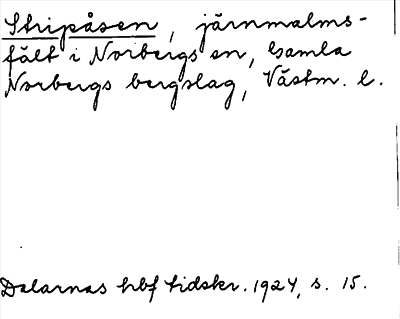 Stripåsen, järnmalms-
fält i Norbergs sn, Gamla
Norbergs bergslag, Västm. l.
Dalarnas hbf tidskr. 1924, s. 15.